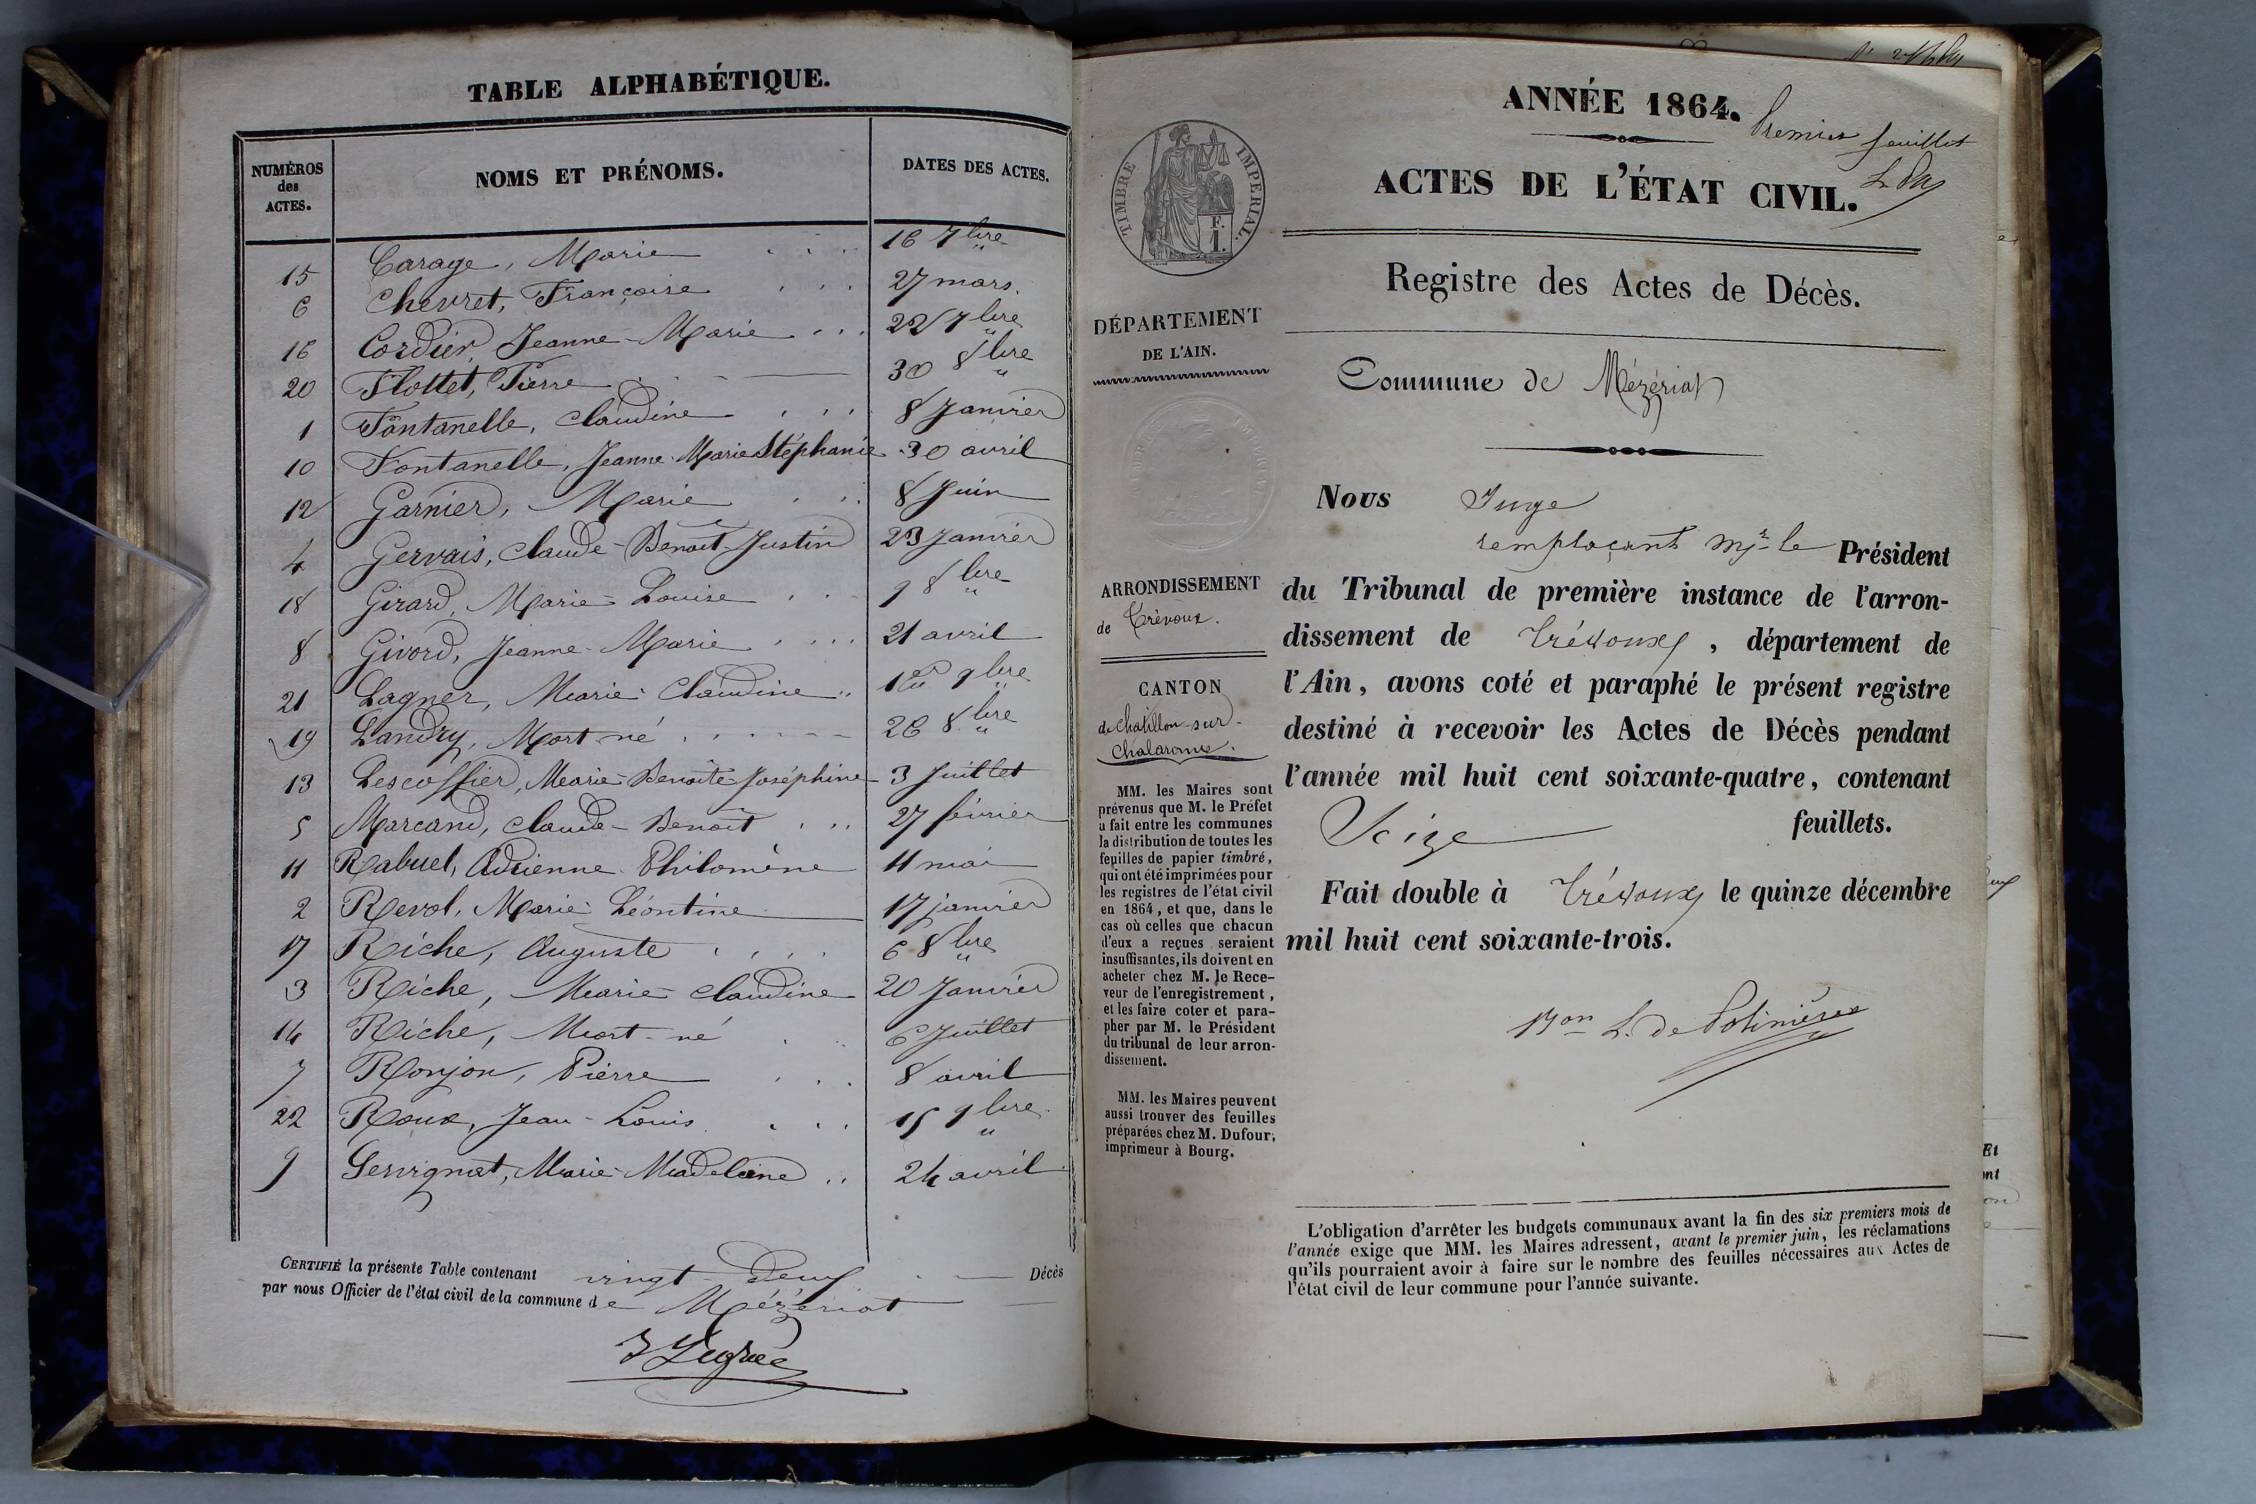 TABLE ALPHABÉTIQUE.
NUMÉROS des ACTES. NOMS ET PRÉNOMS. DATES DES ACTES.
15 Carage, Marie 16 7bre
6 Chevret, Françoise 27 mars.
16 Cordier, Jeanne-Marie 22 7bre
20 Flottet, Pierre 30 8bre
1 Fontanelle, Claudine 8 Janvier
10 Fontanelle, Jeanne-Marie Stéphanie 30 avril
12 Garnier, Marie 8 Juin
4 Gervais, Claude-Benoît-Justin 23 Janvier
18 Girard, Marie-Louise 9 8bre
8 Givord, Jeanne-Marie 21 avril
21 Lagner, Marie-Claudine 1er 9bre
19 Landry, Mort-né 26 8bre
13 Lescoffier, Marie-Benoîte-Joséphine 3 Juillet
5 Marcand, Claude-Benoît 27 février
11 Rabuel, Adrienne Philomène 11 mai
2 Revol, Marie-Léontine 17 janvier
17 Riche, Auguste 6 8bre
3 Riche, Marie-Claudine 20 Janvier
14 Riche, Mort-né 6 Juillet
7 Ronjon, Pierre 8 avril
22 Roux, Jean-Louis 15 9bre
9 Servignat, Marie-Madeleine 24 avril
CERTIFIÉ la présente Table contenant vingt-deux Décès
par nous Officier de l'état civil de la commune de Mézériat
ANNÉE 1864.
Premier feuillet
ACTES DE L'ÉTAT CIVIL.
TIMBRE IMPERIAL.
F.
1.
Registre des Actes de Décès.
DÉPARTEMENT
DE L'AIN.
Commune de Mézériat
Nous Juge
remplaçant Mr le Président
ARRONDISSEMENT
de Trévoux.
du Tribunal de première instance de l'arron-
dissement de Trévoux, département de
l'Ain, avons coté et paraphé le présent registre
destiné à recevoir les Actes de Décès pendant
l'année mil huit cent soixante-quatre, contenant
Seize feuillets.
Fait double à Trévoux le quinze décembre
mil huit cent soixante-trois.
Bon L. de Polinière
CANTON
de Chatillon-sur-
Chalaronne.
MM. les Maires sont
prévenus que M. le Préfet
a fait entre les communes
la distribution de toutes les
feuilles de papier timbré,
qui ont été imprimées pour
les registres de l'état civil
en 1864, et que, dans le
cas où celles que chacun
d'eux a reçues seraient
insuffisantes, ils doivent en
acheter chez M. le Rece-
veur de l'enregistrement,
et les faire coter et para-
pher par M. le Président
du tribunal de leur arron-
dissement.
MM. les Maires peuvent
aussi trouver des feuilles
préparées chez M. Dufour,
imprimeur à Bourg.
L'obligation d'arrêter les budgets communaux avant la fin des six premiers mois de
l'année exige que MM. les Maires adressent, avant le premier juin, les réclamations
qu'ils pourraient avoir à faire sur le nombre des feuilles nécessaires aux Actes de
l'état civil de leur commune pour l'année suivante.